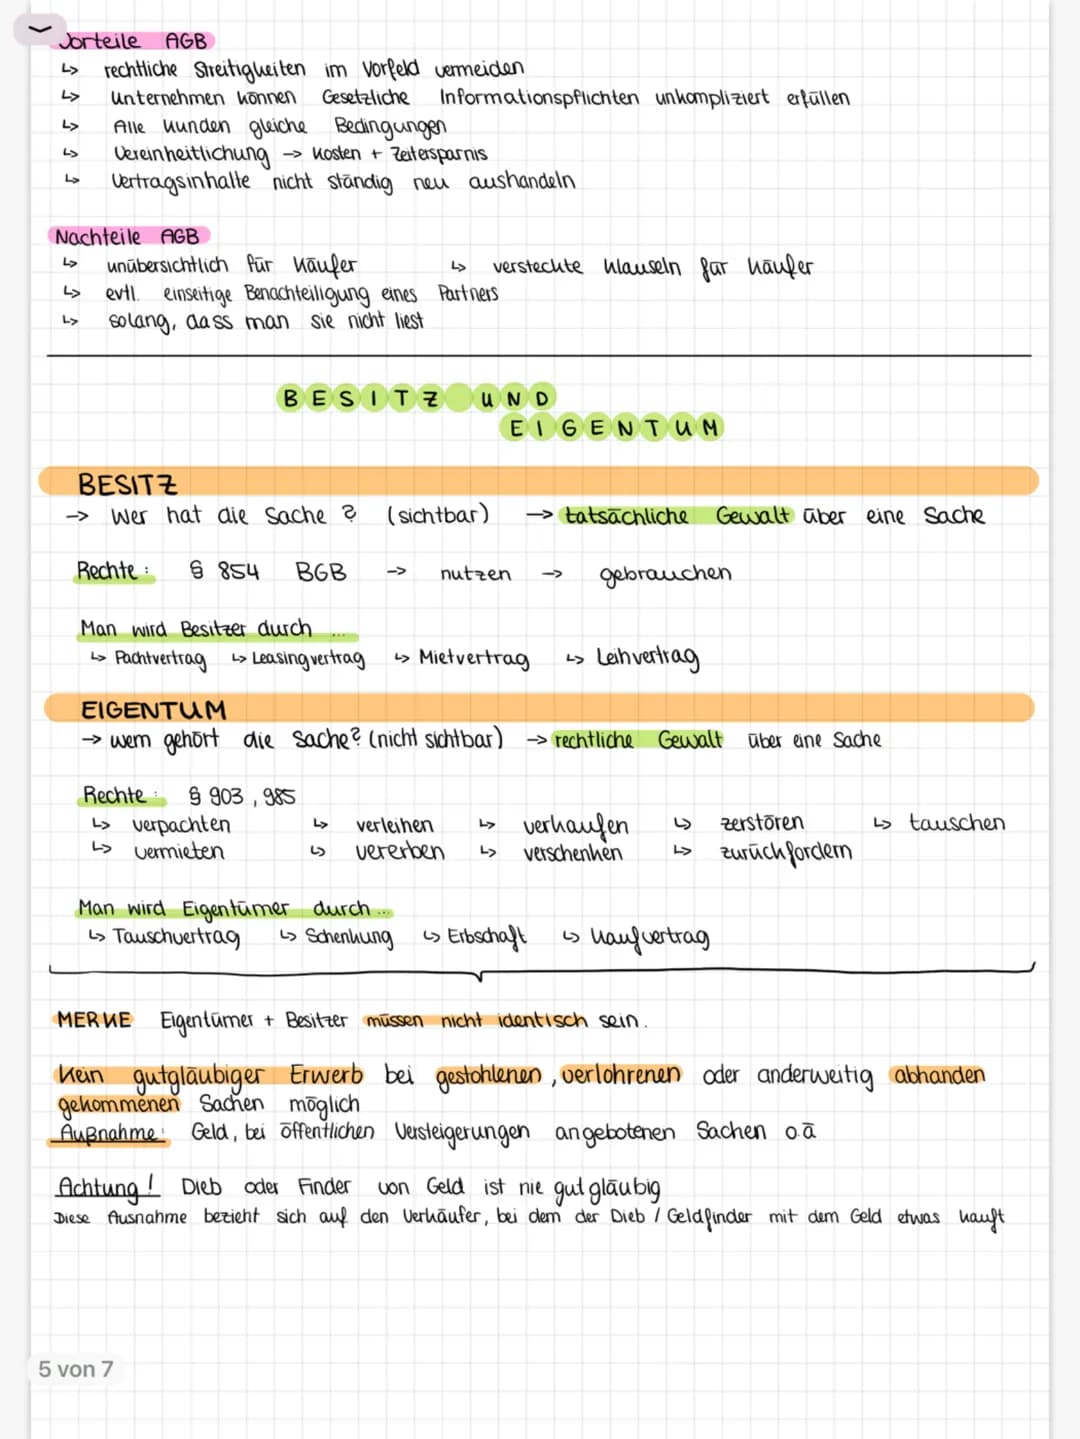 Vorteile AGB
↳ rechtliche Streitigkeiten im Vorfeld vermeiden
↳ Unternehmen können Gesetzliche Informationspflichten unkompliziert erfüllen
↳ Alle Kunden gleiche Bedingungen
↳ Vereinheitlichung → Kosten + Zeitersparnis
↳ Vertragsinhalte nicht ständig neu aushandeln
Nachteile AGB
↳ unübersichtlich für Käufer ↳ versteckte Klauseln für Käufer
↳ evtl. einseitige Benachteiligung eines Partners
↳ solang, dass man sie nicht liest
BESITZ UND
EIGENTUM
BESITZ
→ Wer hat die Sache? (sichtbar) → tatsächliche Gewalt über eine Sache
Rechte: § 854 BGB → nutzen → gebrauchen
Man wird Besitzer durch ...
↳ Pachtvertrag ↳ Leasingvertrag ↳ Mietvertrag ↳ Leihvertrag
EIGENTUM
→ wem gehört die Sache? (nicht sichtbar) → rechtliche Gewalt über eine Sache
Rechte: § 903, 985
↳ verpachten ↳ verleihen ↳ verkaufen ↳ zerstören ↳ tauschen
↳ vermieten ↳ vererben ↳ verschenken ↳ zurückfordern
Man wird Eigentümer durch ...
↳ Tauschvertrag ↳ Schenkung ↳ Erbschaft ↳ Kaufvertrag
MERKE Eigentümer + Besitzer müssen nicht identisch sein.
Kein gutgläubiger Erwerb bei gestohlenen, verlohrenen oder anderweitig abhanden
gekommenen Sachen möglich
Außnahme: Geld, bei öffentlichen Versteigerungen angebotenen Sachen o.ä
Achtung! Dieb oder Finder von Geld ist nie gutgläubig
Diese Ausnahme bezieht sich auf den Verkäufer, bei dem der Dieb / Geldfinder mit dem Geld etwas kauft
5 von 7